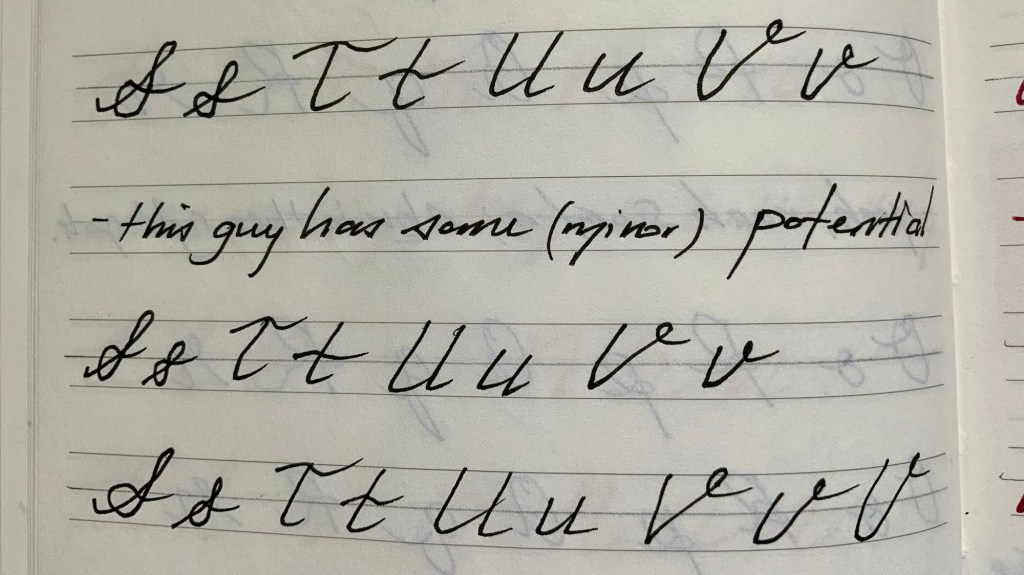 S s T t U u V v
- this guy has some (minor) potential
S s T t U u V v
S s T t U u V v V